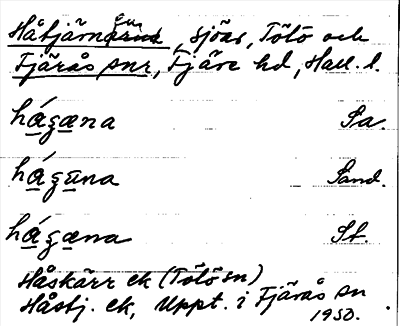 Håtjärnarna, sjöar, Tölö och
Fjärås snr, Fjäre hd, Hall. l.
hágæna Sa.
hágūna Sand.
hágæna St.
Håskärr ek (Tölö sn)
Håstj. ek, Uppt. i Fjärås sn
1950.